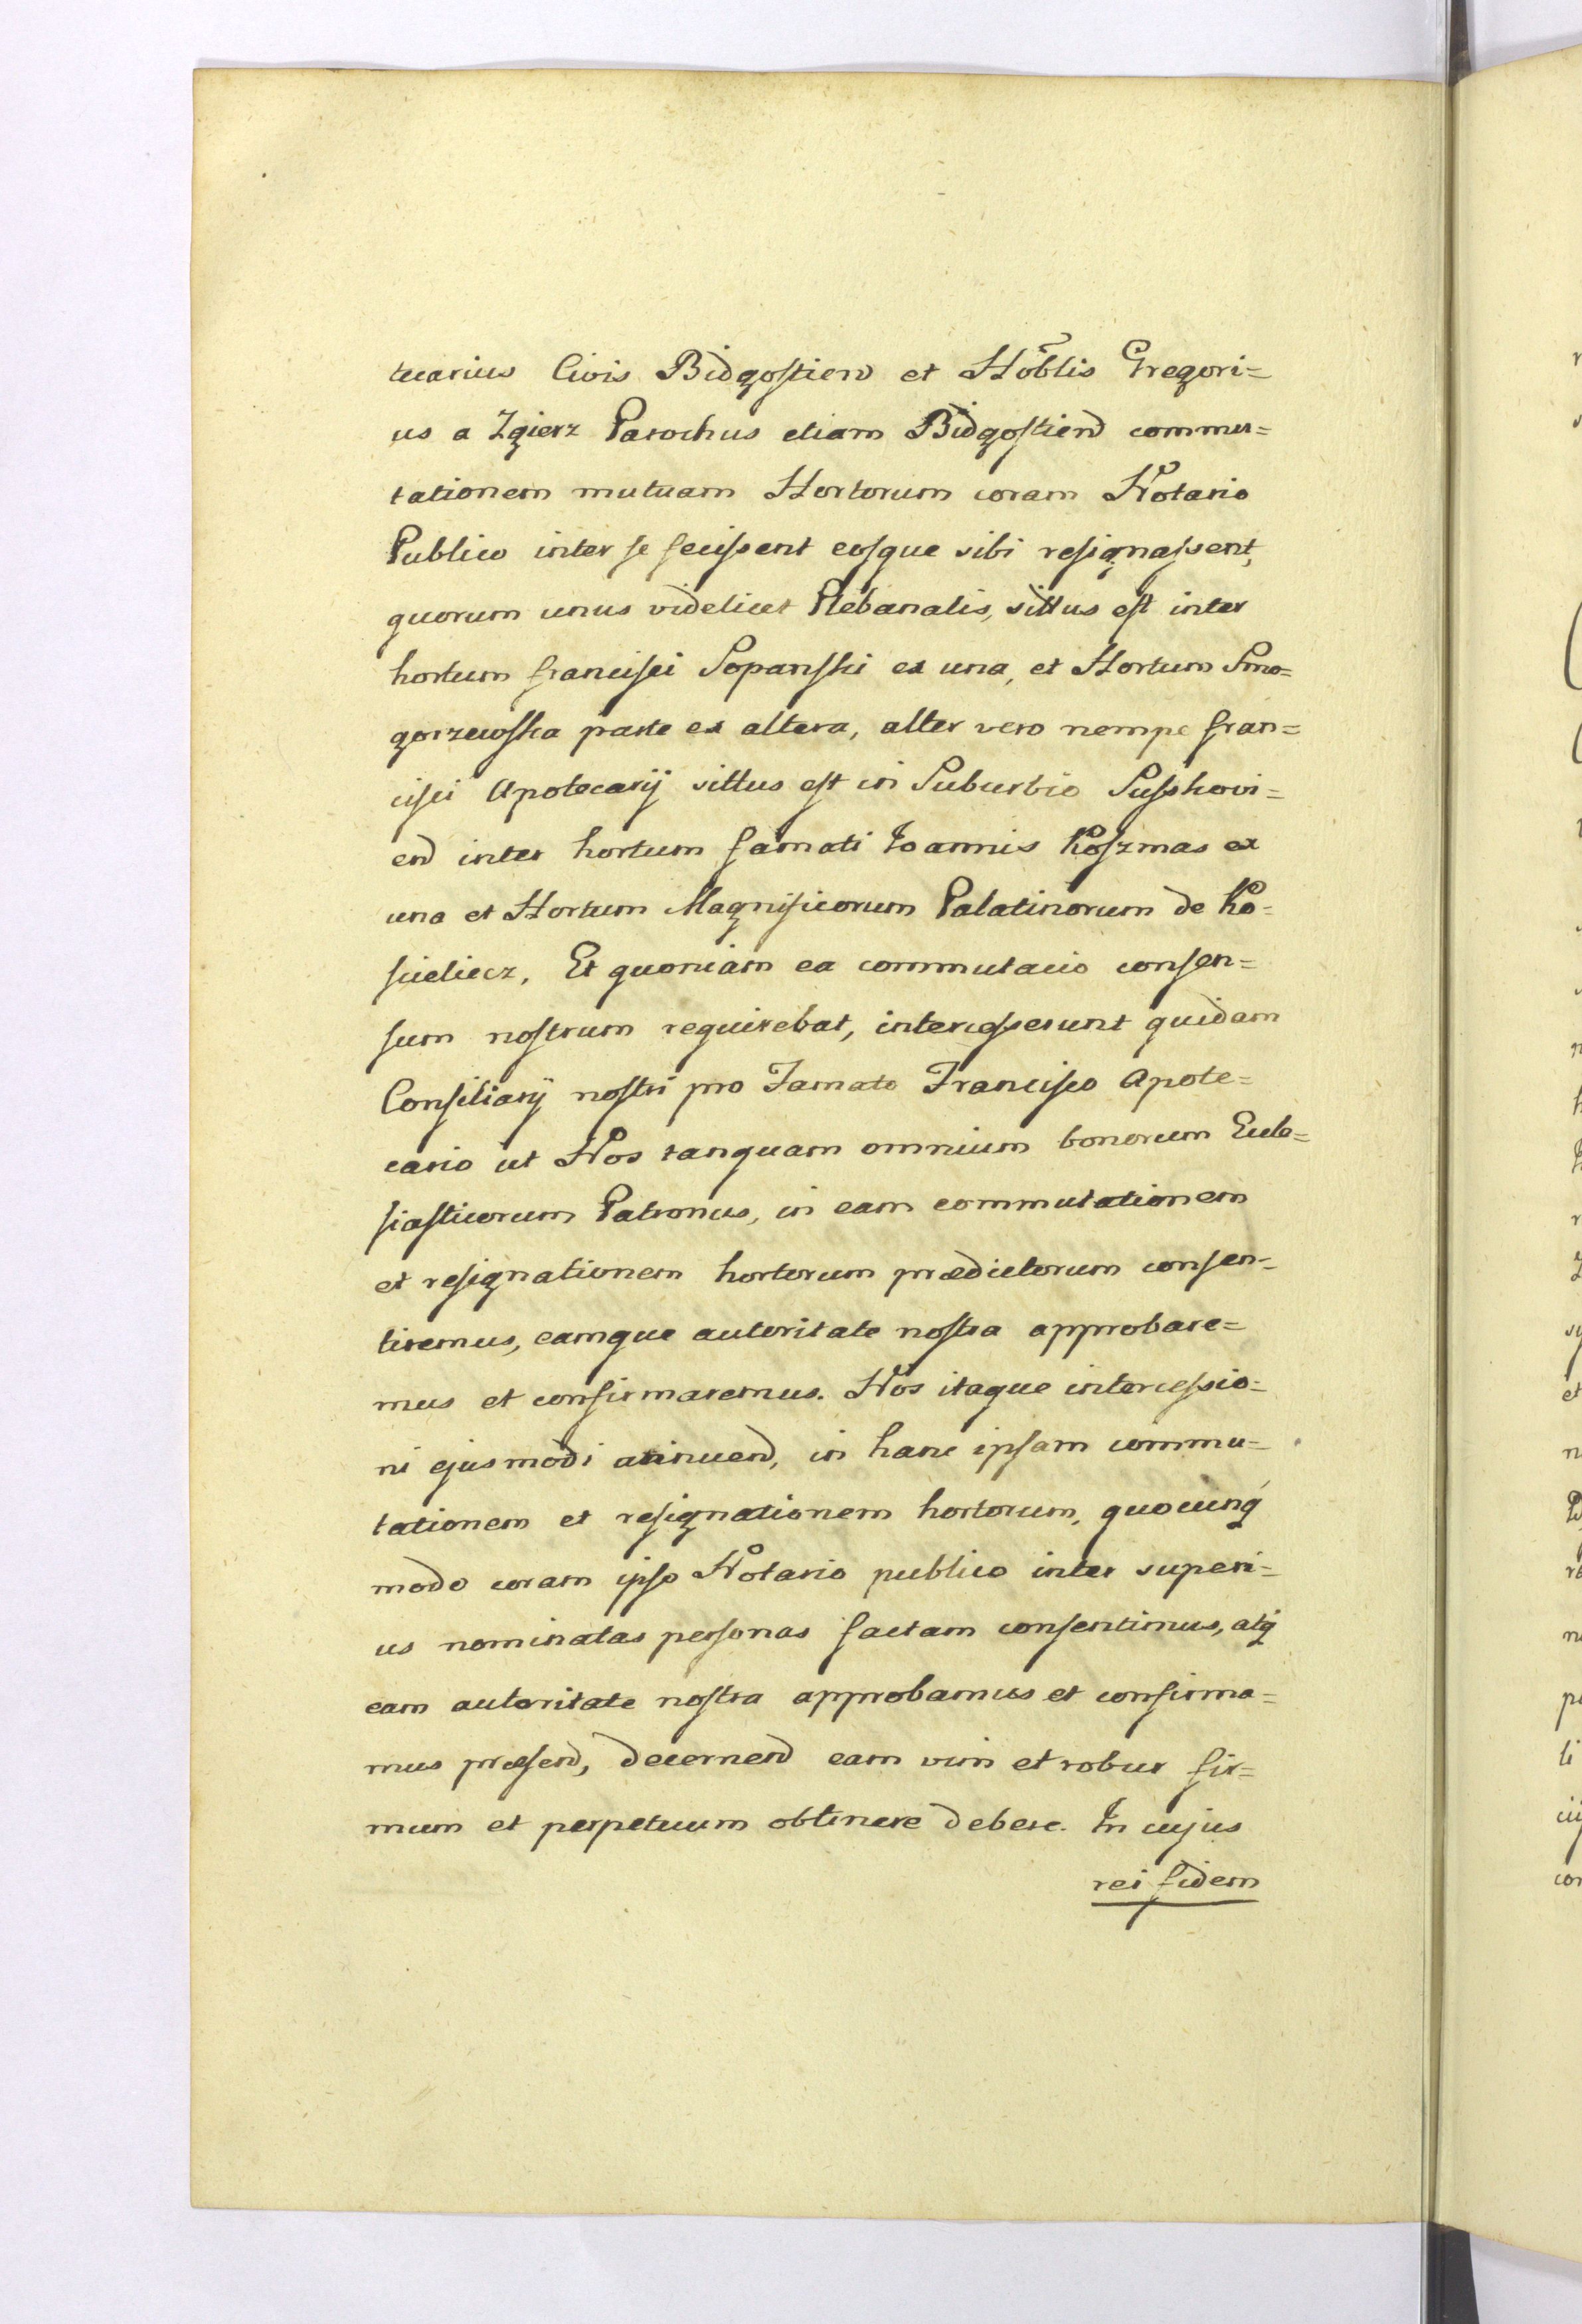 tuarius Civis Bidgostien et Hoblis Gregori=
us a Zgierz Parochus etiam Bidgostien commu=
tationem mutuam Hortorum coram Notario
Publico inter se fecissent eosque sibi resignassent,
quorum unus videlicet Plebanalis, sittus est inter
hortum francisci Sopanski ex una, et Hortum Smo=
gorzewska parte ex altera, alter vero nempe fran=
cisci Apotecarij sittus est in Suburbio Susskovi=
en inter hortum famati Ioannis Koszmas ex
una et Hortum Magnificorum Palatinorum de Ko=
scieliecz, Et quoniam ea commutacio consen=
sum nostrum requirebat, intercesserunt quidam
Consiliarij nostri pro Famato Francisco Apote=
cario ut Nos tanquam omnium bonorum Eccle=
siasticorum Patronus, in eam commutationem
et resignationem hortorum praedictorum consen=
tiremus, eamque autoritate nostra approbare=
mus et confirmaremus. Nos itaque intercessio=
ni ejusmodi annuen, in hanc ipsam commu=
tationem et resignationem hortorum, quocunq
modo coram ipso Notario publico inter superi=
us nominatas personas factam consentimus, atq
eam autoritate nostra approbamus et confirma=
mus praesen, decernen eam vim et robur fir=
mum et perpetuum obtinere debere. In cujus
rei fidem